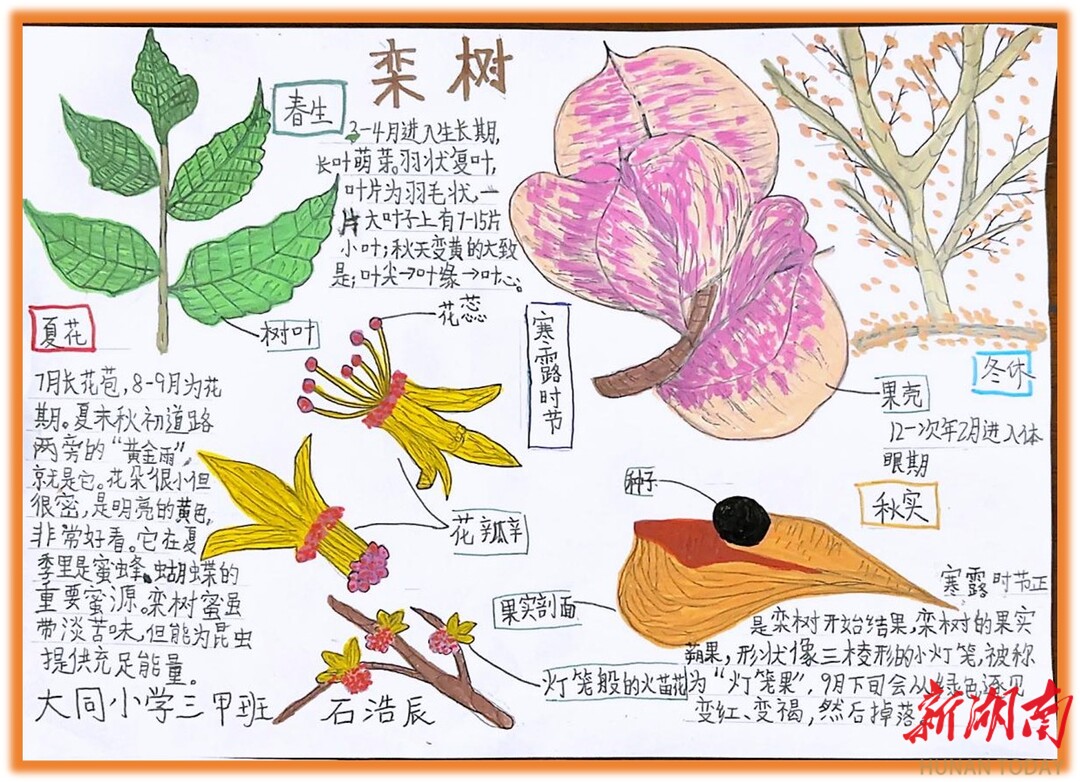 栾树
春生
3-4月进入生长期,
长叶萌芽。羽状复叶,
叶片为羽毛状,一
片大叶子上有7-15片
小叶;秋天变黄的大致
是;叶尖→叶缘→叶心。
树叶
夏花
7月长花苞,8-9月为花
期。夏末秋初道路
两旁的“黄金雨”,
就是它。花朵很小但
很密,是明亮的黄色,
非常好看。它在夏
季里是蜜蜂、蝴蝶的
重要蜜源。栾树蜜虽
带淡苦味,但能为昆虫
提供充足能量。
大同小学三甲班 石浩辰
花蕊
花瓣
寒露时节
果壳
冬休
12-次年2月进入休
眠期
种子
秋实
果实剖面
灯笼般的火苗花
寒露时节正
是栾树开始结果,栾树的果实
蒴果,形状像三棱形的小灯笼,被称
为“灯笼果”,9月下旬会从绿色逐见
变红、变褐,然后掉落
新湖南
HUNAN TODAY